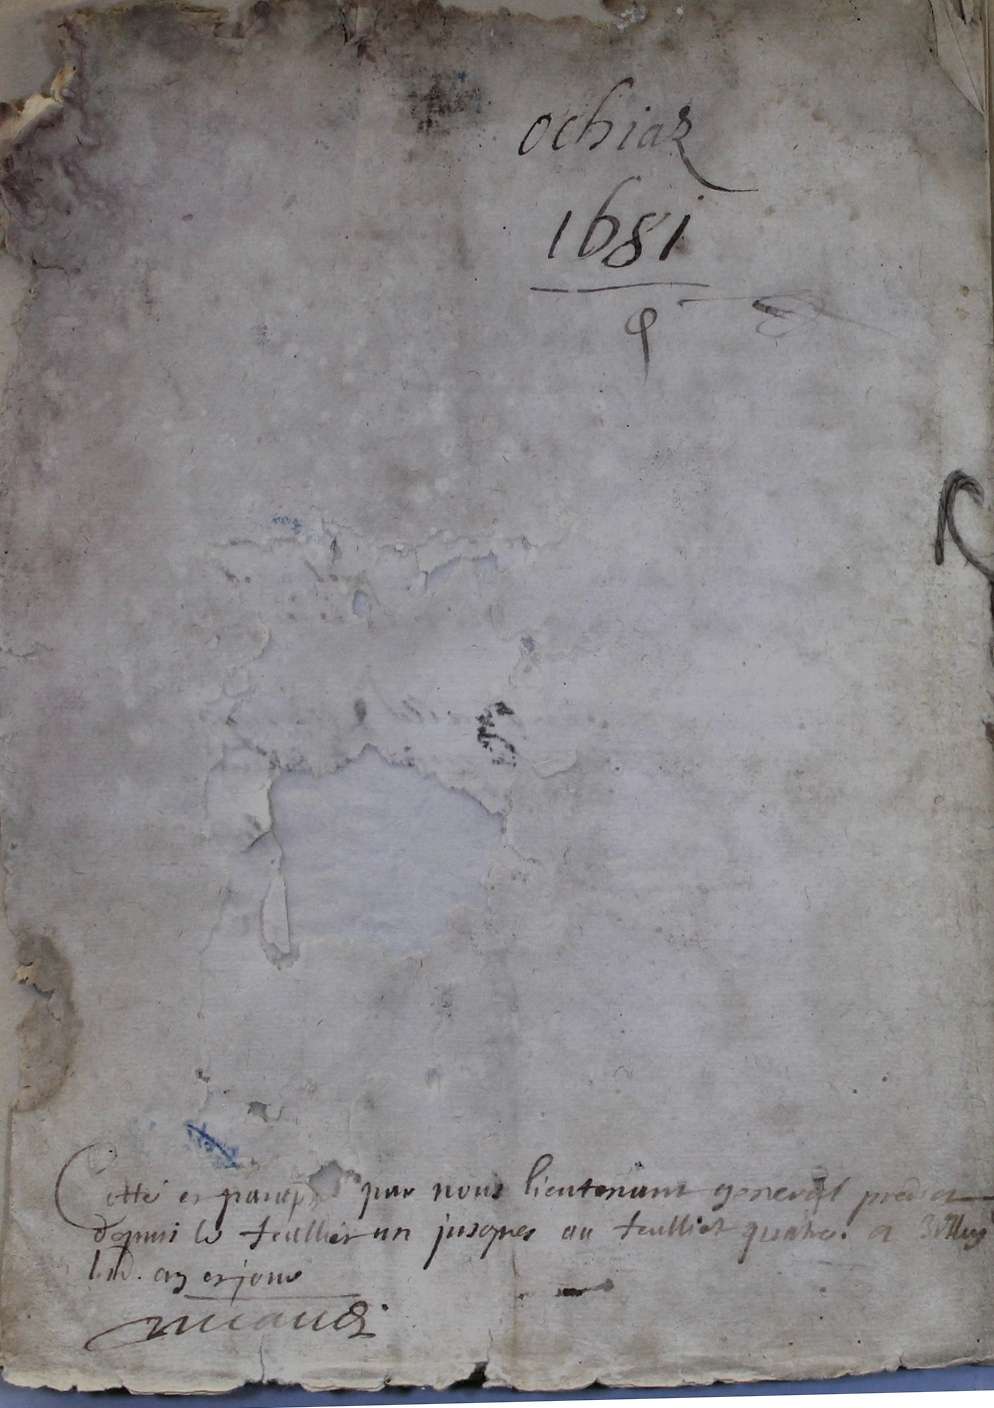 ochiaz
1681
Cotté et paraphé par nous lieutenant general
depuis le feulliet un jusques au feulliet quatre. a
an et jour